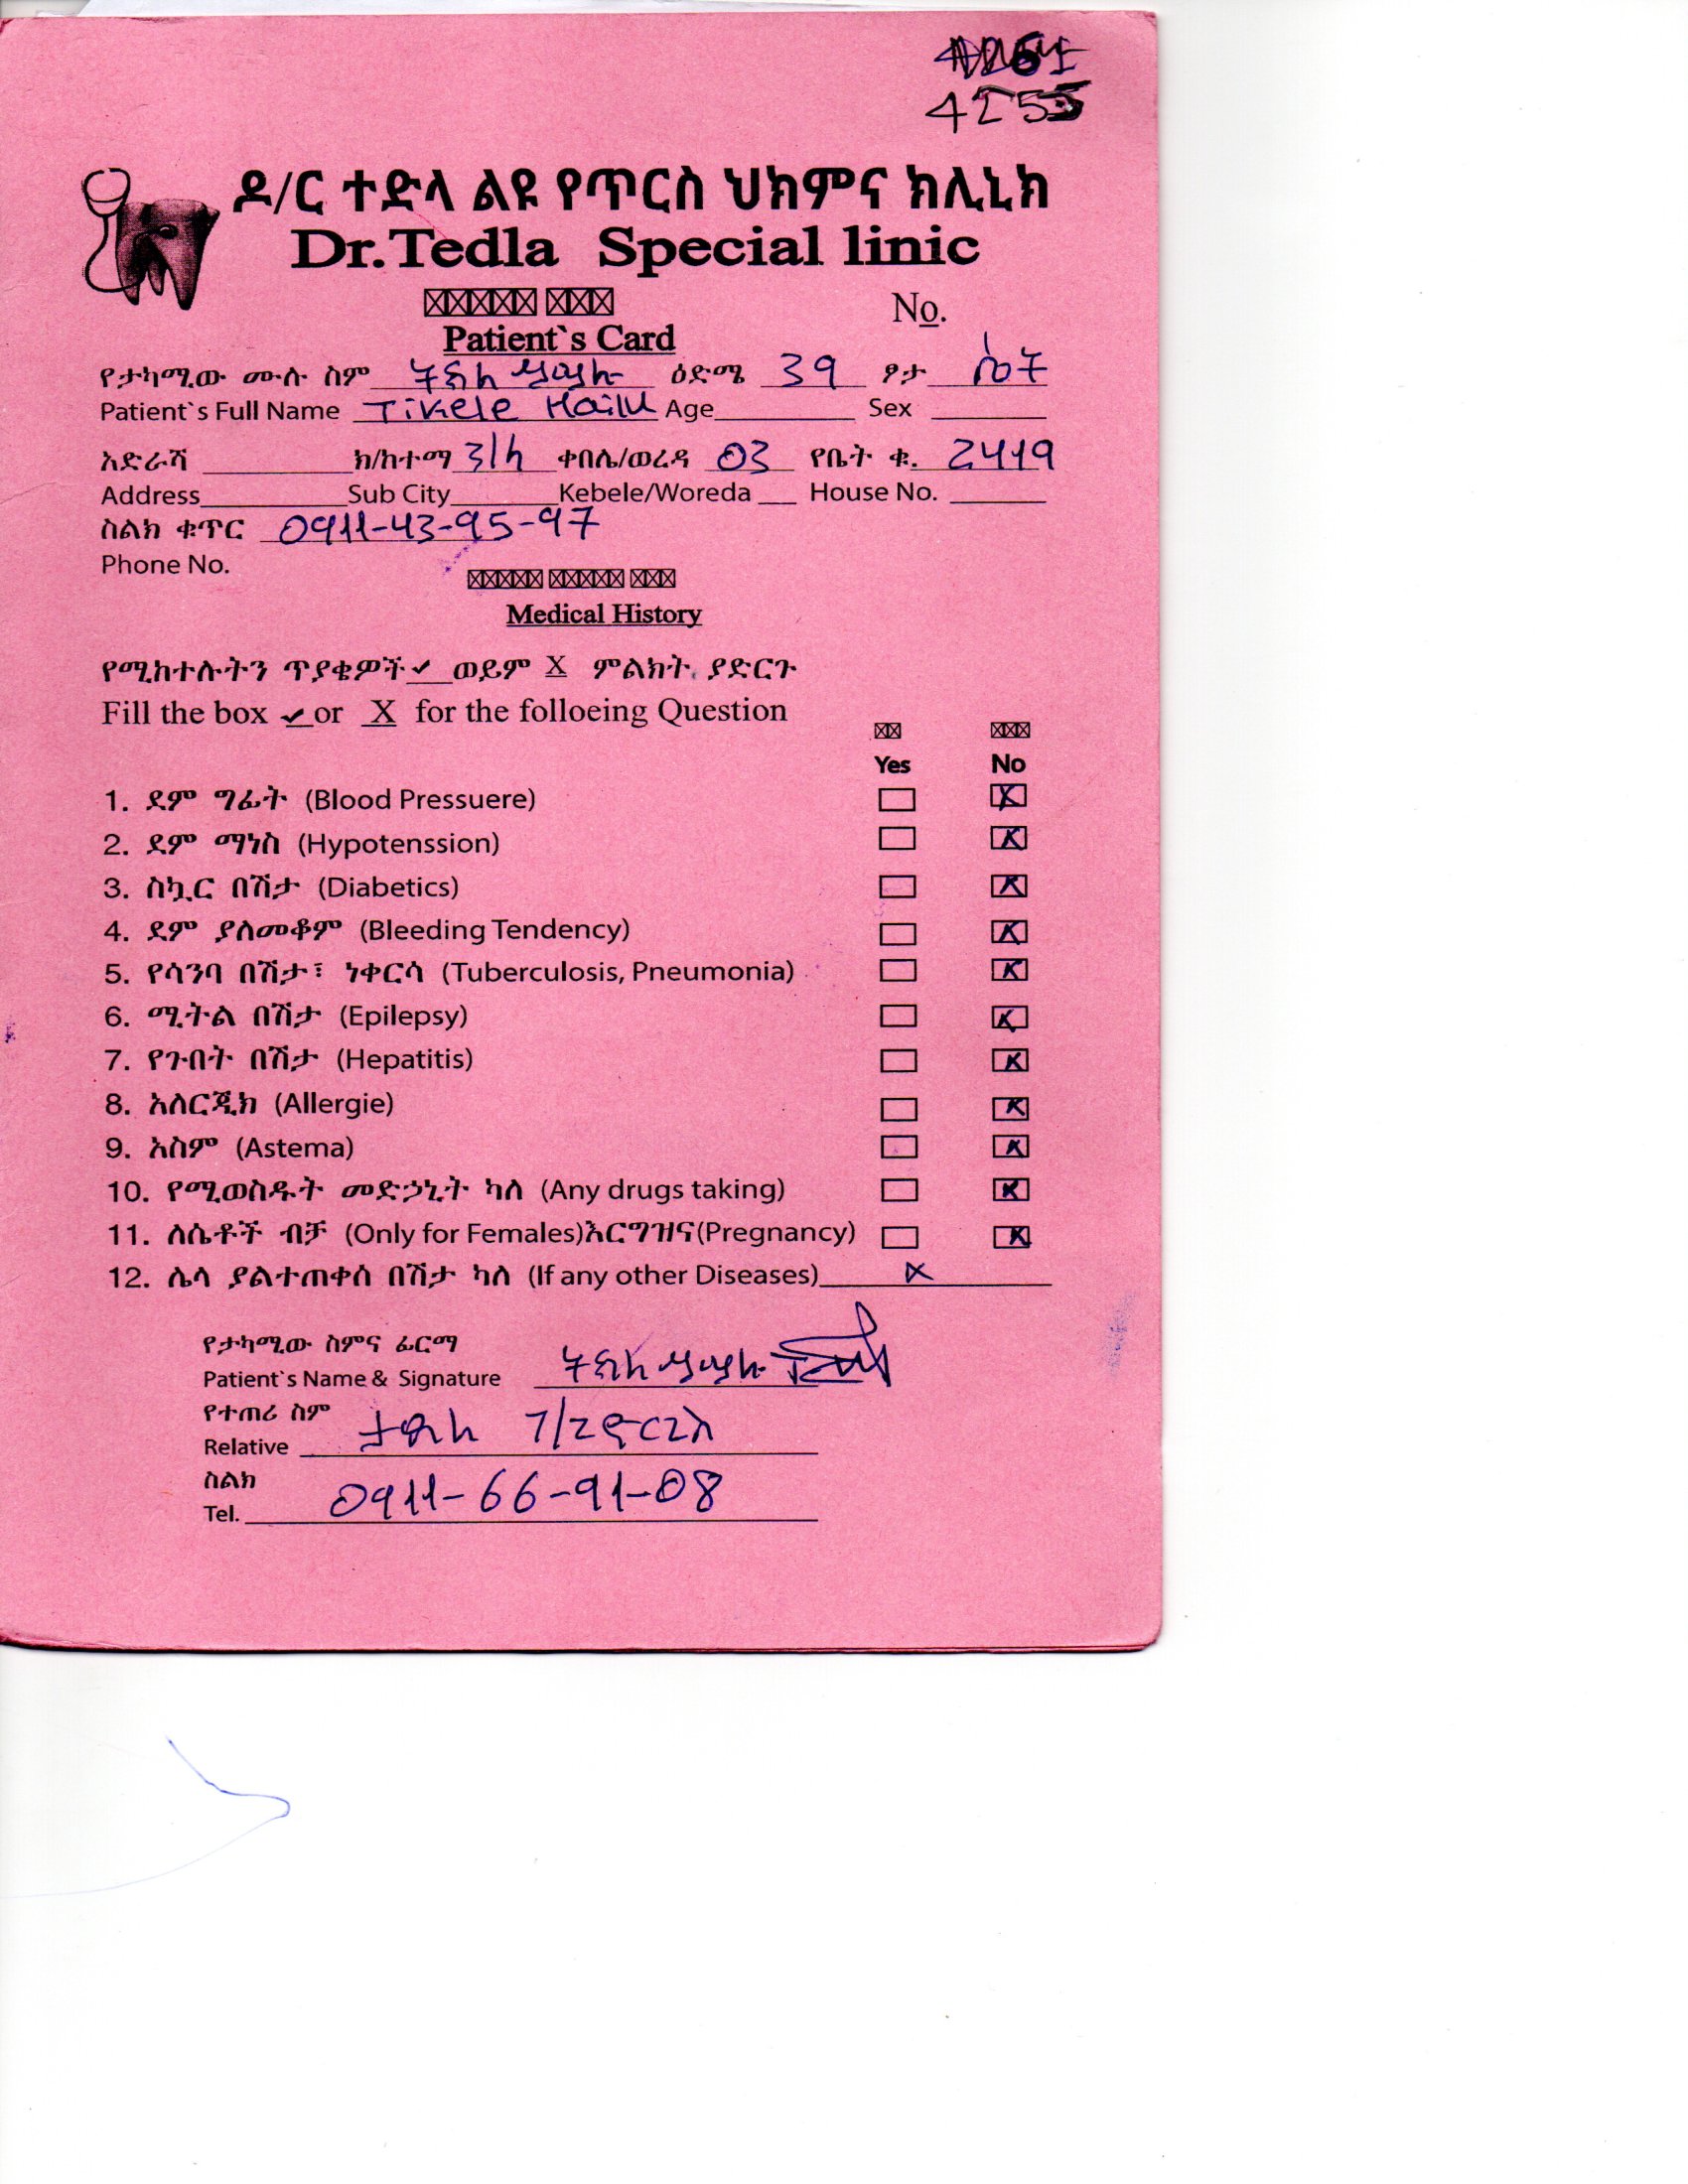 4255
ዶ/ር ተድላ ልዩ የጥርስ ህክምና ክሊኒክ
Dr.Tedla Special linic
No.
Patient`s Card
የታካሚው ሙሉ ስም ዕድሜ 39 ፆታ ሴት
Patient`s Full Name Tikele Hailu Age Sex
አድራሻ ክ/ከተማ ቀበሌ/ወረዳ 03 የቤት ቁ. 2419
Address Sub City Kebele/Woreda House No.
ስልክ ቁጥር 0911-43-95-97
Phone No.
Medical History
የሚከተሉትን ጥያቄዎች ✓ ወይም X ምልክት ያድርጉ
Fill the box ✓ or X for the folloeing Question
Yes No
1. ደም ግፊት (Blood Pressuere) ☐ ☒
2. ደም ማነስ (Hypotenssion) ☐ ☒
3. ስኳር በሽታ (Diabetics) ☐ ☒
4. ደም ያለመቆም (Bleeding Tendency) ☐ ☒
5. የሳንባ በሽታ፣ ነቀርሳ (Tuberculosis, Pneumonia) ☐ ☒
6. ሚትል በሽታ (Epilepsy) ☐ ☒
7. የጉበት በሽታ (Hepatitis) ☐ ☒
8. አለርጂክ (Allergie) ☐ ☒
9. አስም (Astema) ☐ ☒
10. የሚወስዱት መድኃኒት ካለ (Any drugs taking) ☐ ☒
11. ለሴቶች ብቻ (Only for Females)እርግዝና(Pregnancy) ☐ ☒
12. ሌላ ያልተጠቀሰ በሽታ ካለ (If any other Diseases) X
የታካሚው ስምና ፊርማ
Patient`s Name & Signature
የተጠሪ ስም
Relative
ስልክ
Tel. 0911-66-91-08